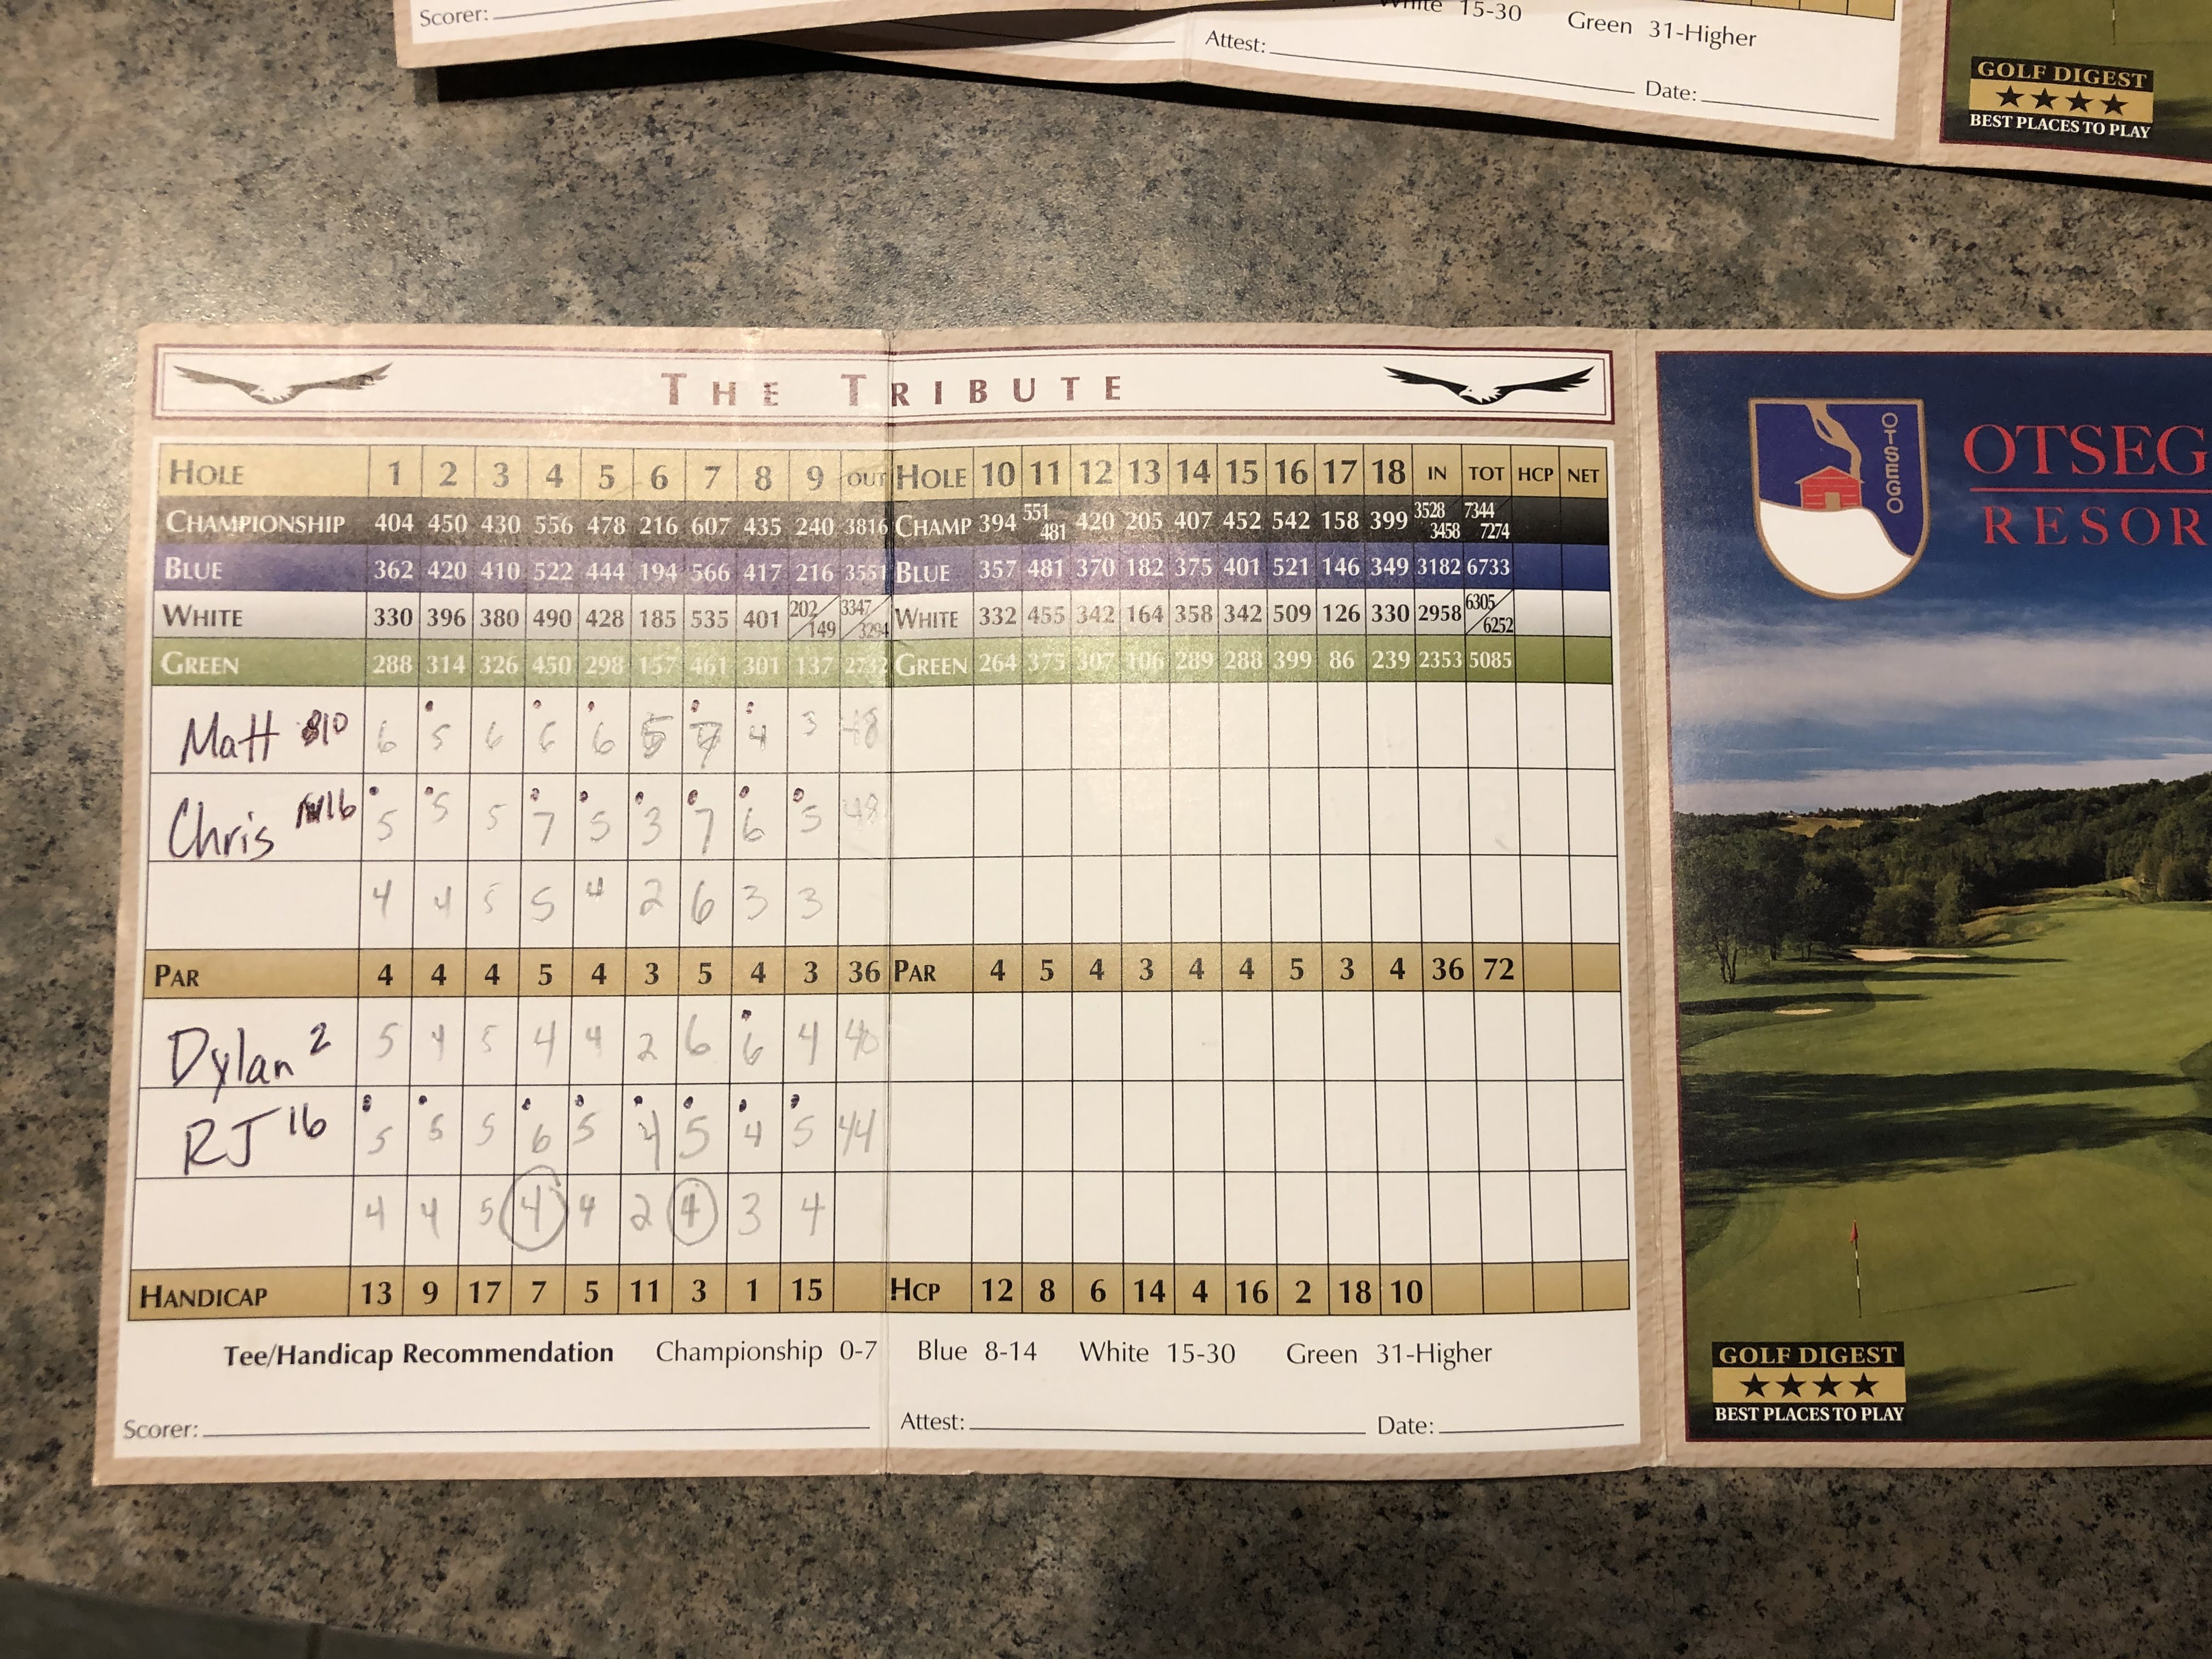 Scorer:
White 15-30 Green 31-Higher
Attest:
Date:
GOLF DIGEST
★★★★
BEST PLACES TO PLAY
THE TRIBUTE
HOLE 1 2 3 4 5 6 7 8 9 OUT HOLE 10 11 12 13 14 15 16 17 18 IN TOT HCP NET
CHAMPIONSHIP 404 450 430 556 478 216 607 435 240 3816 CHAMP 394 551 481 420 205 407 452 542 158 399 3528 3458 7344 7274
BLUE 362 420 410 522 444 194 566 417 216 3551 BLUE 357 481 370 182 375 401 521 146 349 3182 6733
WHITE 330 396 380 490 428 185 535 401 202/149 3347/3294 WHITE 332 455 342 164 358 342 509 126 330 2958 6305/6252
GREEN 288 314 326 450 298 157 461 301 137 2732 GREEN 264 375 307 106 289 288 399 86 239 2353 5085
Matt 10 6 5 6 6 6 5 4 3 48
Chris 16 5 5 5 7 5 3 7 6 5 48
4 4 5 5 4 2 6 3 3
PAR 4 4 4 5 4 3 5 4 3 36 PAR 4 5 4 3 4 4 5 3 4 36 72
Dylan 2 5 4 5 4 4 2 6 6 4 40
RJ 16 5 5 5 6 5 4 5 4 5 44
4 4 5 4 4 2 4 3 4
HANDICAP 13 9 17 7 5 11 3 1 15 HCP 12 8 6 14 4 16 2 18 10
Tee/Handicap Recommendation Championship 0-7 Blue 8-14 White 15-30 Green 31-Higher
Scorer: Attest: Date:
OTSEGO
OTSEG
RESOR
GOLF DIGEST
★★★★
BEST PLACES TO PLAY